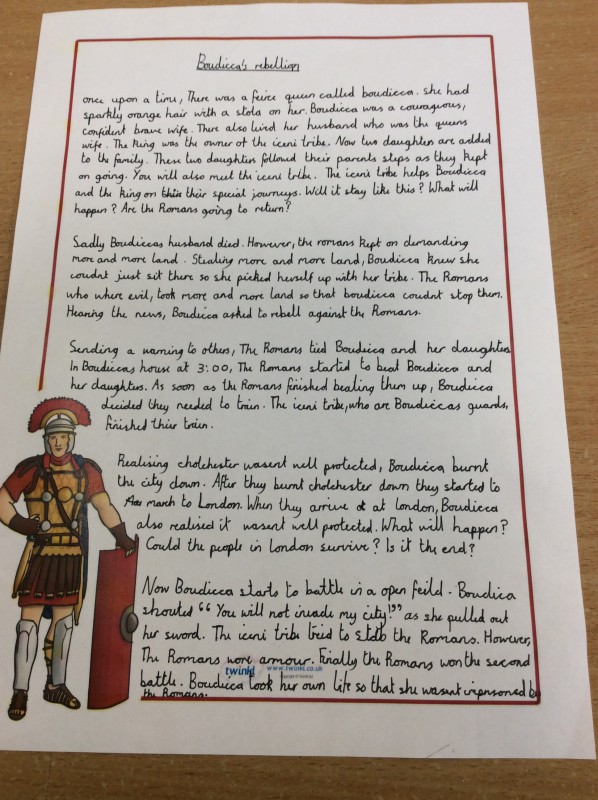 Boudicca's rebellion
once upon a time, There was a feirce queen called boudicca. she had
sparkly orange hair with a stola on her. Boudicca was a courageous,
confident brave wife. There also lived her husband who was the queens
wife. The King was the owner of the iceni tribe. Now two daughters are added
to the family. These two daughters followed their parents steps as they kept
on going. You will also meet the iceni tribe. The iceni tribe helps Boudicca
and the king on their special journeys. Will it stay like this? What will
happen? Are the Romans going to return?
Sadly Boudiccas husband died. However, the romans kept on demanding
more and more land. Stealing more and more land, Boudicca knew she
couldnt just sit there so she picked herself up with her tribe. The Romans
who where evil, took more and more land so that boudicca couldnt stop them.
Hearing the news, Boudicca asked to rebell against the Romans.
Sending a warning to others, The Romans tied Boudicca and her daughters.
In Boudiccas house at 3:00, The Romans started to beat Boudicca and
her daughters. As soon as the Romans finished beating them up, Boudicca
decided they needed to train. The iceni tribe, who are Boudiccas guards,
finished their train.
Realising cholchester wasent well protected, Boudicca burnt
the city down. After they burnt cholchester down they started to
march to London. When they arrive at london, Boudicca
also realised it wasent well protected. What will happen?
Could the people in London survive? Is it the end?
Now Boudicca starts to battle in a open feild. Boudica
shouted "You will not invade my city!" as she pulled out
her sword. The iceni tribe tried to stab the Romans. However,
The Romans wore armour. Finally the Romans won the second
twinkl www.twinkl.co.uk
battle. Boudicca took her own life so that she wasent inprisoned by
the Romans.